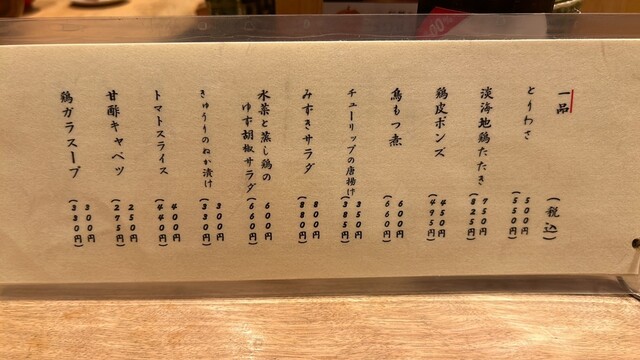 一品
(税込)
とりわさ
500円
(550円)
淡海地鶏たたき
750円
(825円)
鶏皮ポンズ
450円
(495円)
鳥もつ煮
600円
(660円)
チューリップの唐揚げ
350円
(385円)
みすきサラダ
800円
(880円)
水菜と蒸し鶏の
ゆず胡椒サラダ
600円
(660円)
きゅうりのぬか漬け
300円
(330円)
トマトスライス
400円
(440円)
甘酢キャベツ
250円
(275円)
鶏ガラスープ
300円
(330円)